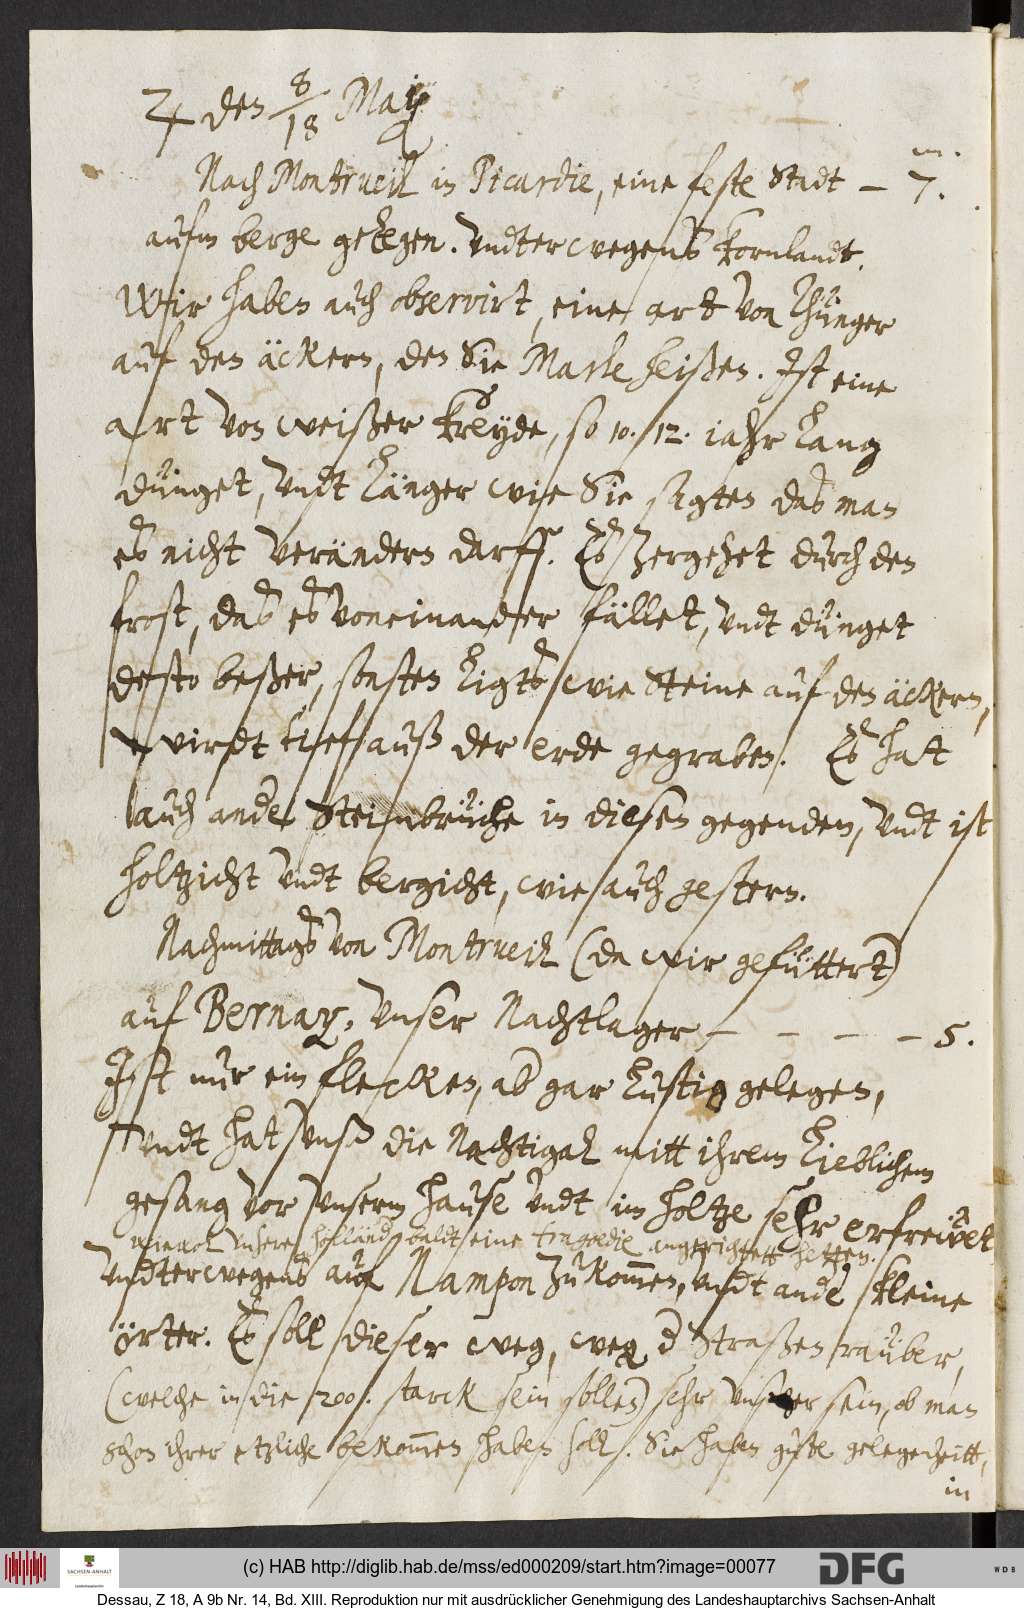 ♃ den 8/18 May
m.
Nach Montrueil in Picardie, eine feste Stadt – 7.
aufm berge gelegen. Vndterwegens kornlandt.
Wir haben auch observirt, eine art von Thünger
auf den äckern, den Sie Marle heißen. Ist eine
art von weißer kreyde, so 10. 12. iahr lang
dünget, vndt länger wie Sie sagten das man
es nicht verändern darff. Es zergehet durch den
frost, das es voneinander fället, vndt dünget
desto beßer, sonsten ligts wie Steine auf den äckern,
wirdt tief auß der erde gegraben. Es hatt
auch ander Steinbrüche in diesen gegenden, vndt ist
holtzicht vndt bergicht, wie auch gestern.
Nachmittags von Montrueil (da wir gefüttert)
auf Bernay, vnser Nachtlager – – – – 5.
Ist nur ein flecken, ab gar lustig gelegen,
vndt hat vnß die Nachtigal mitt ihrem lieblichem
gesang vor vnserm hause vndt im holtze sehr erfreẅet
vnsere holländ baldt eine tragedie angerichtett hetten.
Vndterwegens auf Nampon zu kommen, vndt and kleine
örter. Es soll dieser weg, weg d Straßenraüber,
(welche in die 200. starck sein sollen) sehr vnsicher sein, ob man
schon ihrer etzliche bekommen haben soll. Sie haben gute gelegenheitt,
in
(c) HAB http://diglib.hab.de/mss/ed000209/start.htm?image=00077
SACHSEN-ANHALT
DFG
WDB
Dessau, Z 18, A 9b Nr. 14, Bd. XIII. Reproduktion nur mit ausdrücklicher Genehmigung des Landeshauptarchivs Sachsen-Anhalt